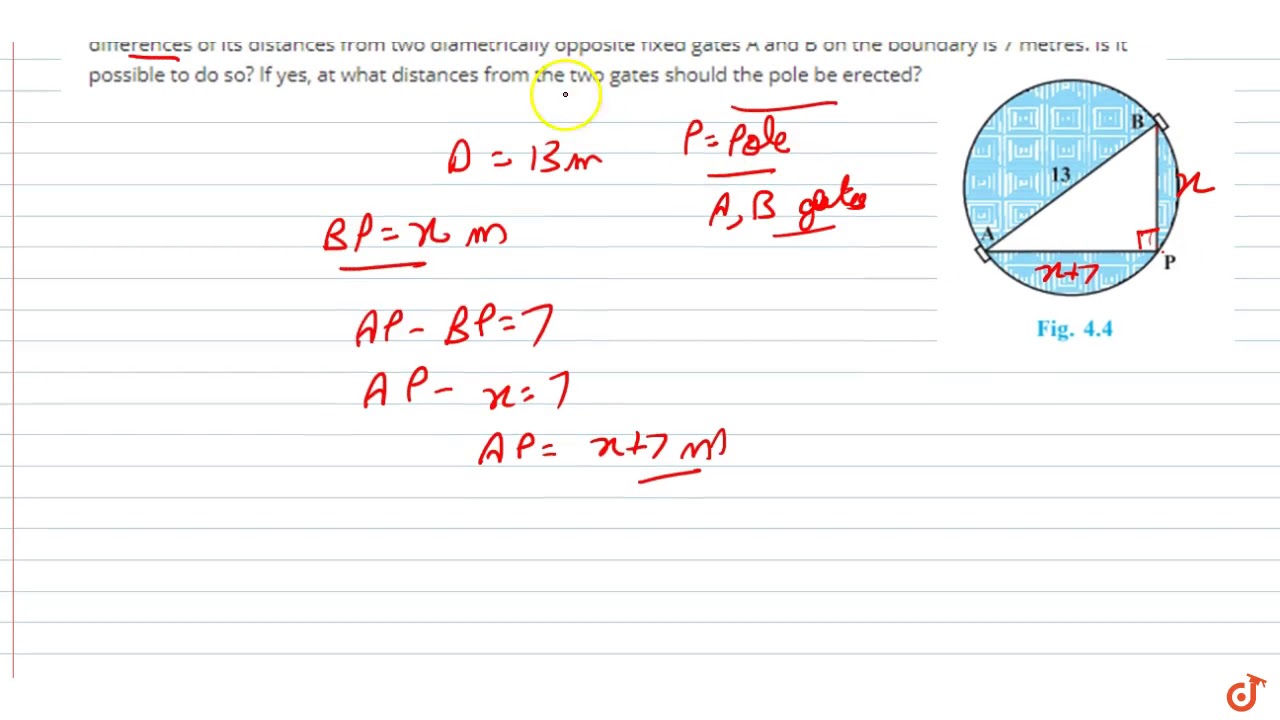 differences of its distances from two diametrically opposite fixed gates A and B on the boundary is 7 metres. Is it
possible to do so? If yes, at what distances from the two gates should the pole be erected?
D = 13 m
P = Pole
A, B gates
BP = x m
AP - BP = 7
AP - x = 7
AP = x+7 m
B
13
x
A
x+7
P
Fig. 4.4